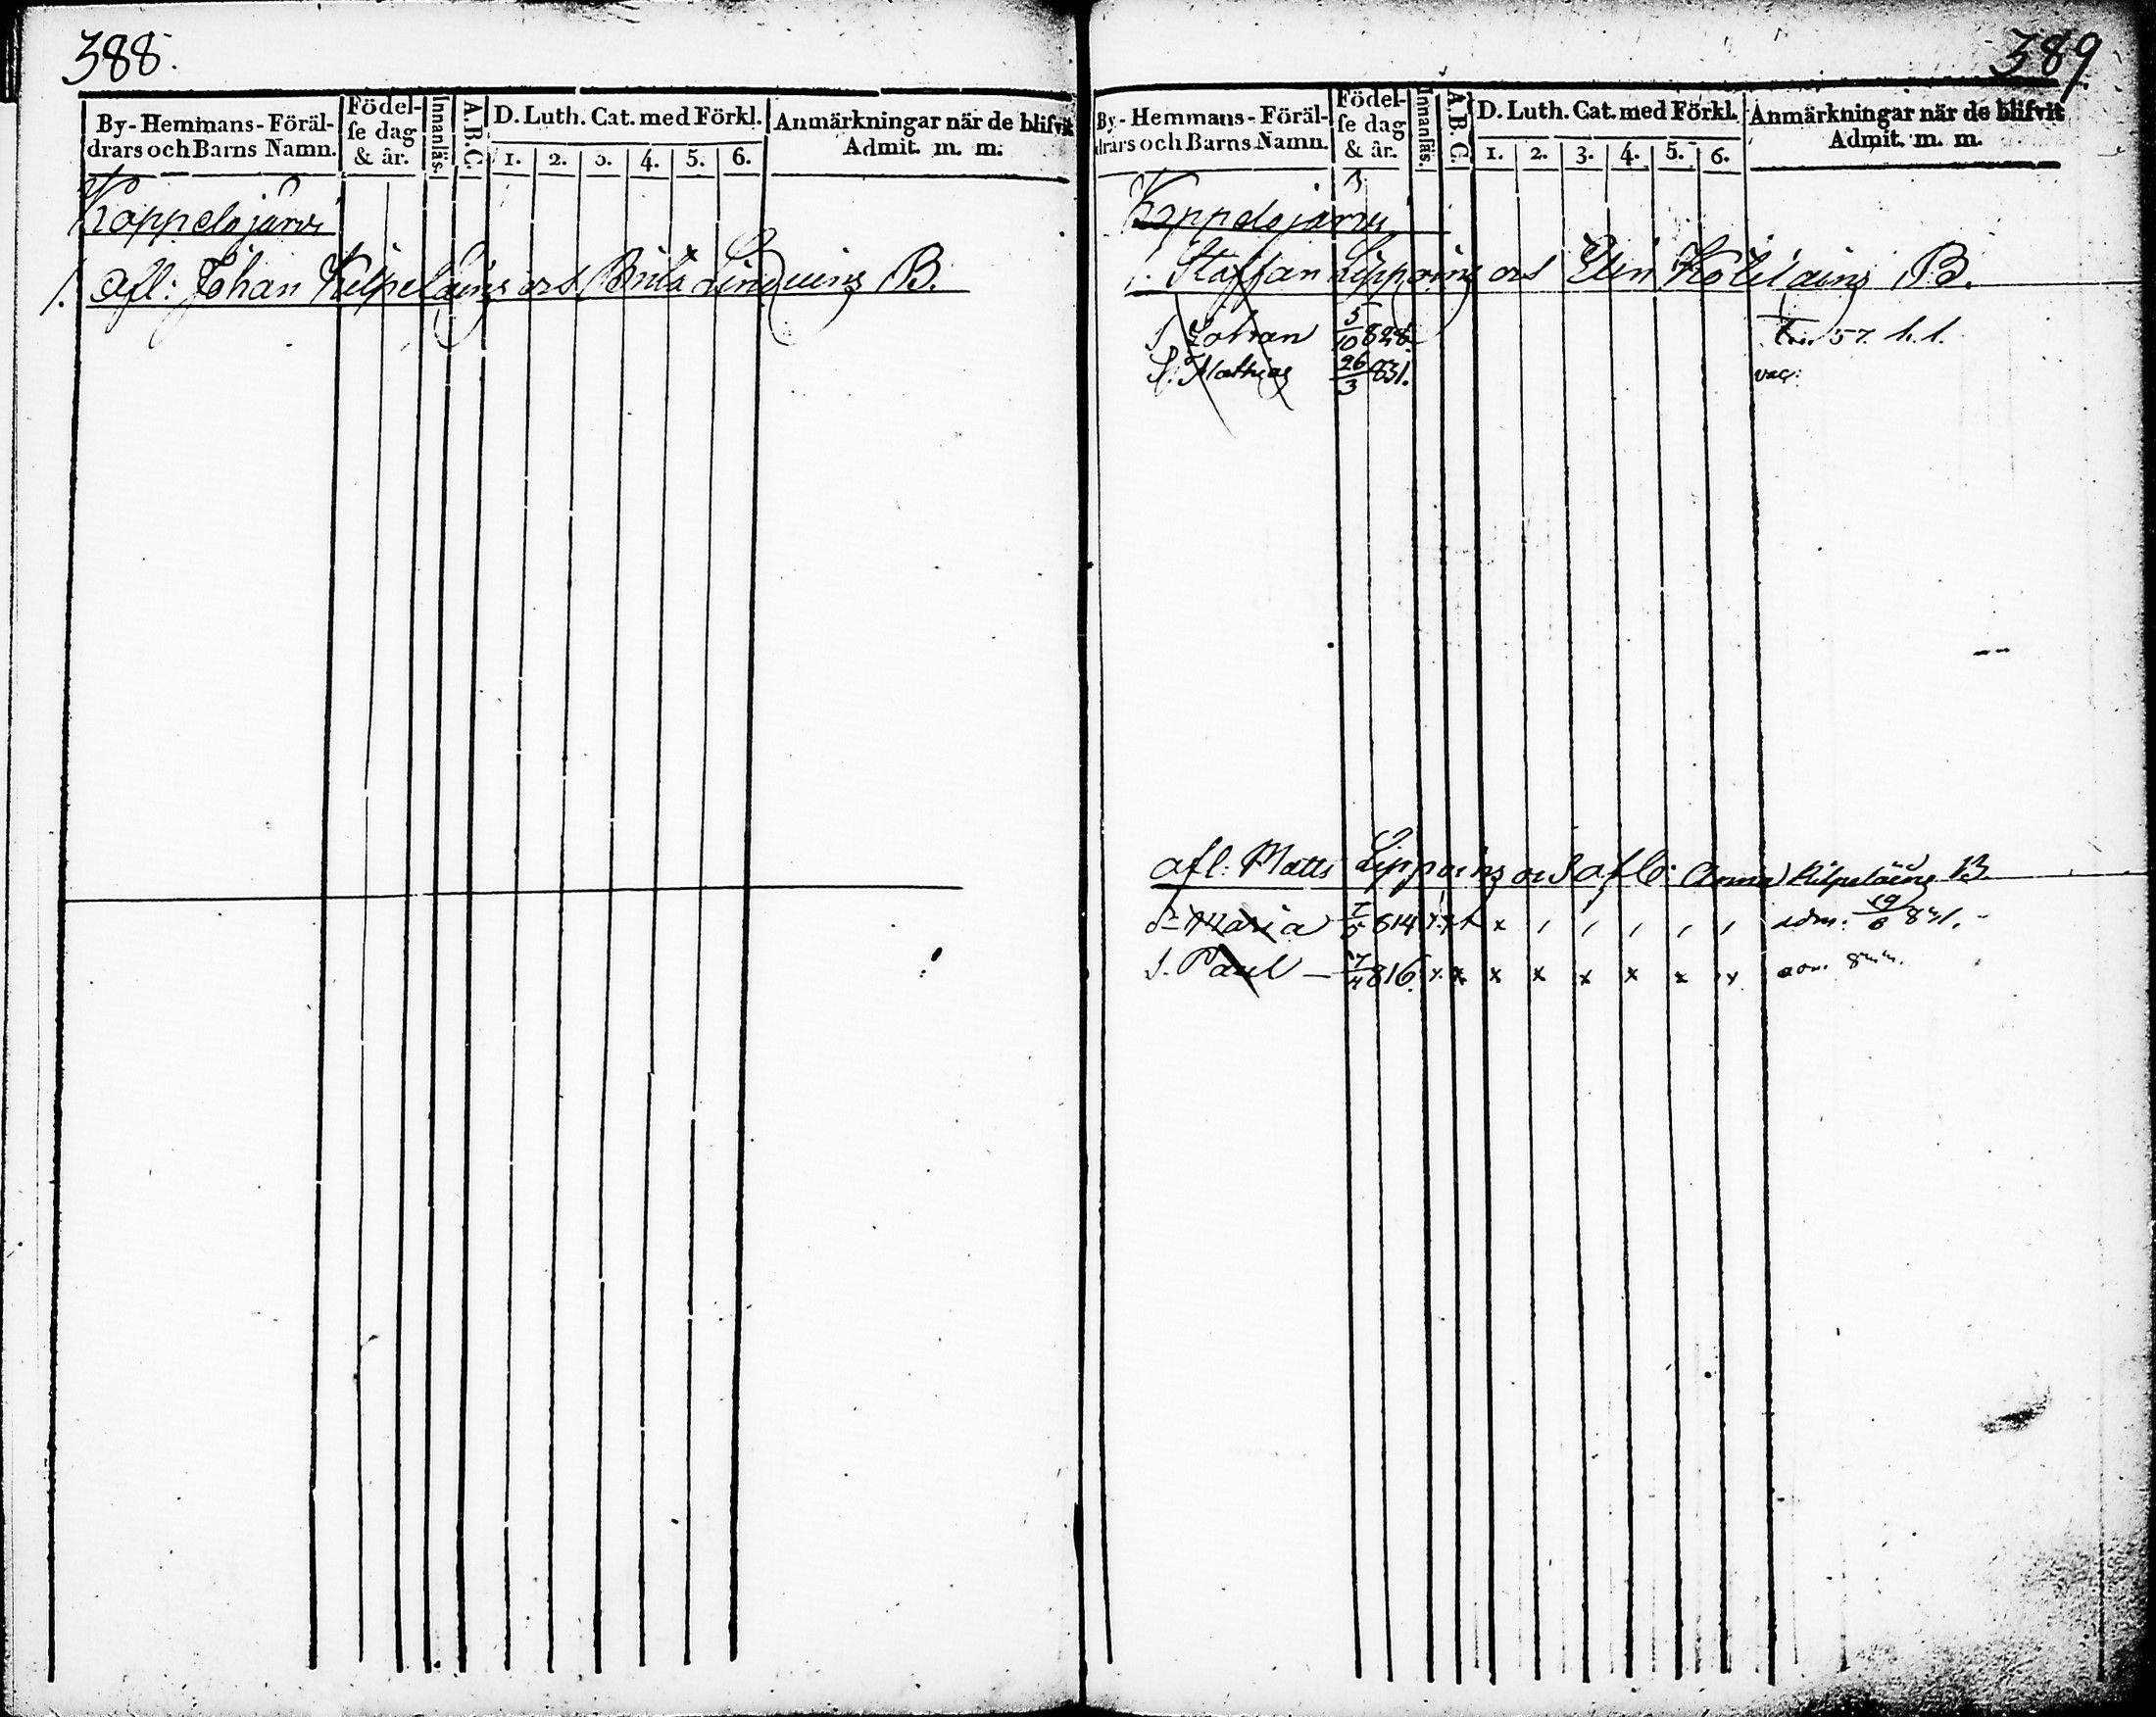 388.
By-Hemmans-Föräl-
drars och Barns Namn.
Födel-
se dag
& år.
Innanläs.
A.B.C.
D. Luth. Cat. med Förkl.
1. 2. 3. 4. 5. 6.
Anmärkningar när de blifvit
Admit. m. m.
Koppelojärvi
1. Afl: Johan Kilpeläing B.
389.
By-Hemmans-Föräl-
drars och Barns Namn.
Födel-
se dag
& år.
Innanläs.
A.B.C.
D. Luth. Cat. med Förkl.
1. 2. 3. 4. 5. 6.
Anmärkningar när de blifvit
Admit. m. m.
Koppelojärvi
1. Staffan Lippoing B.
S. Johan 5/10 828.
S. Mathias 26/3 831. vac:
afl: Matts Lippoing Anna Kilpeläing B.
Maria 814 x x x / / / / / adm: 19/6 831.
S. Paul — 816. x x x x x x x x